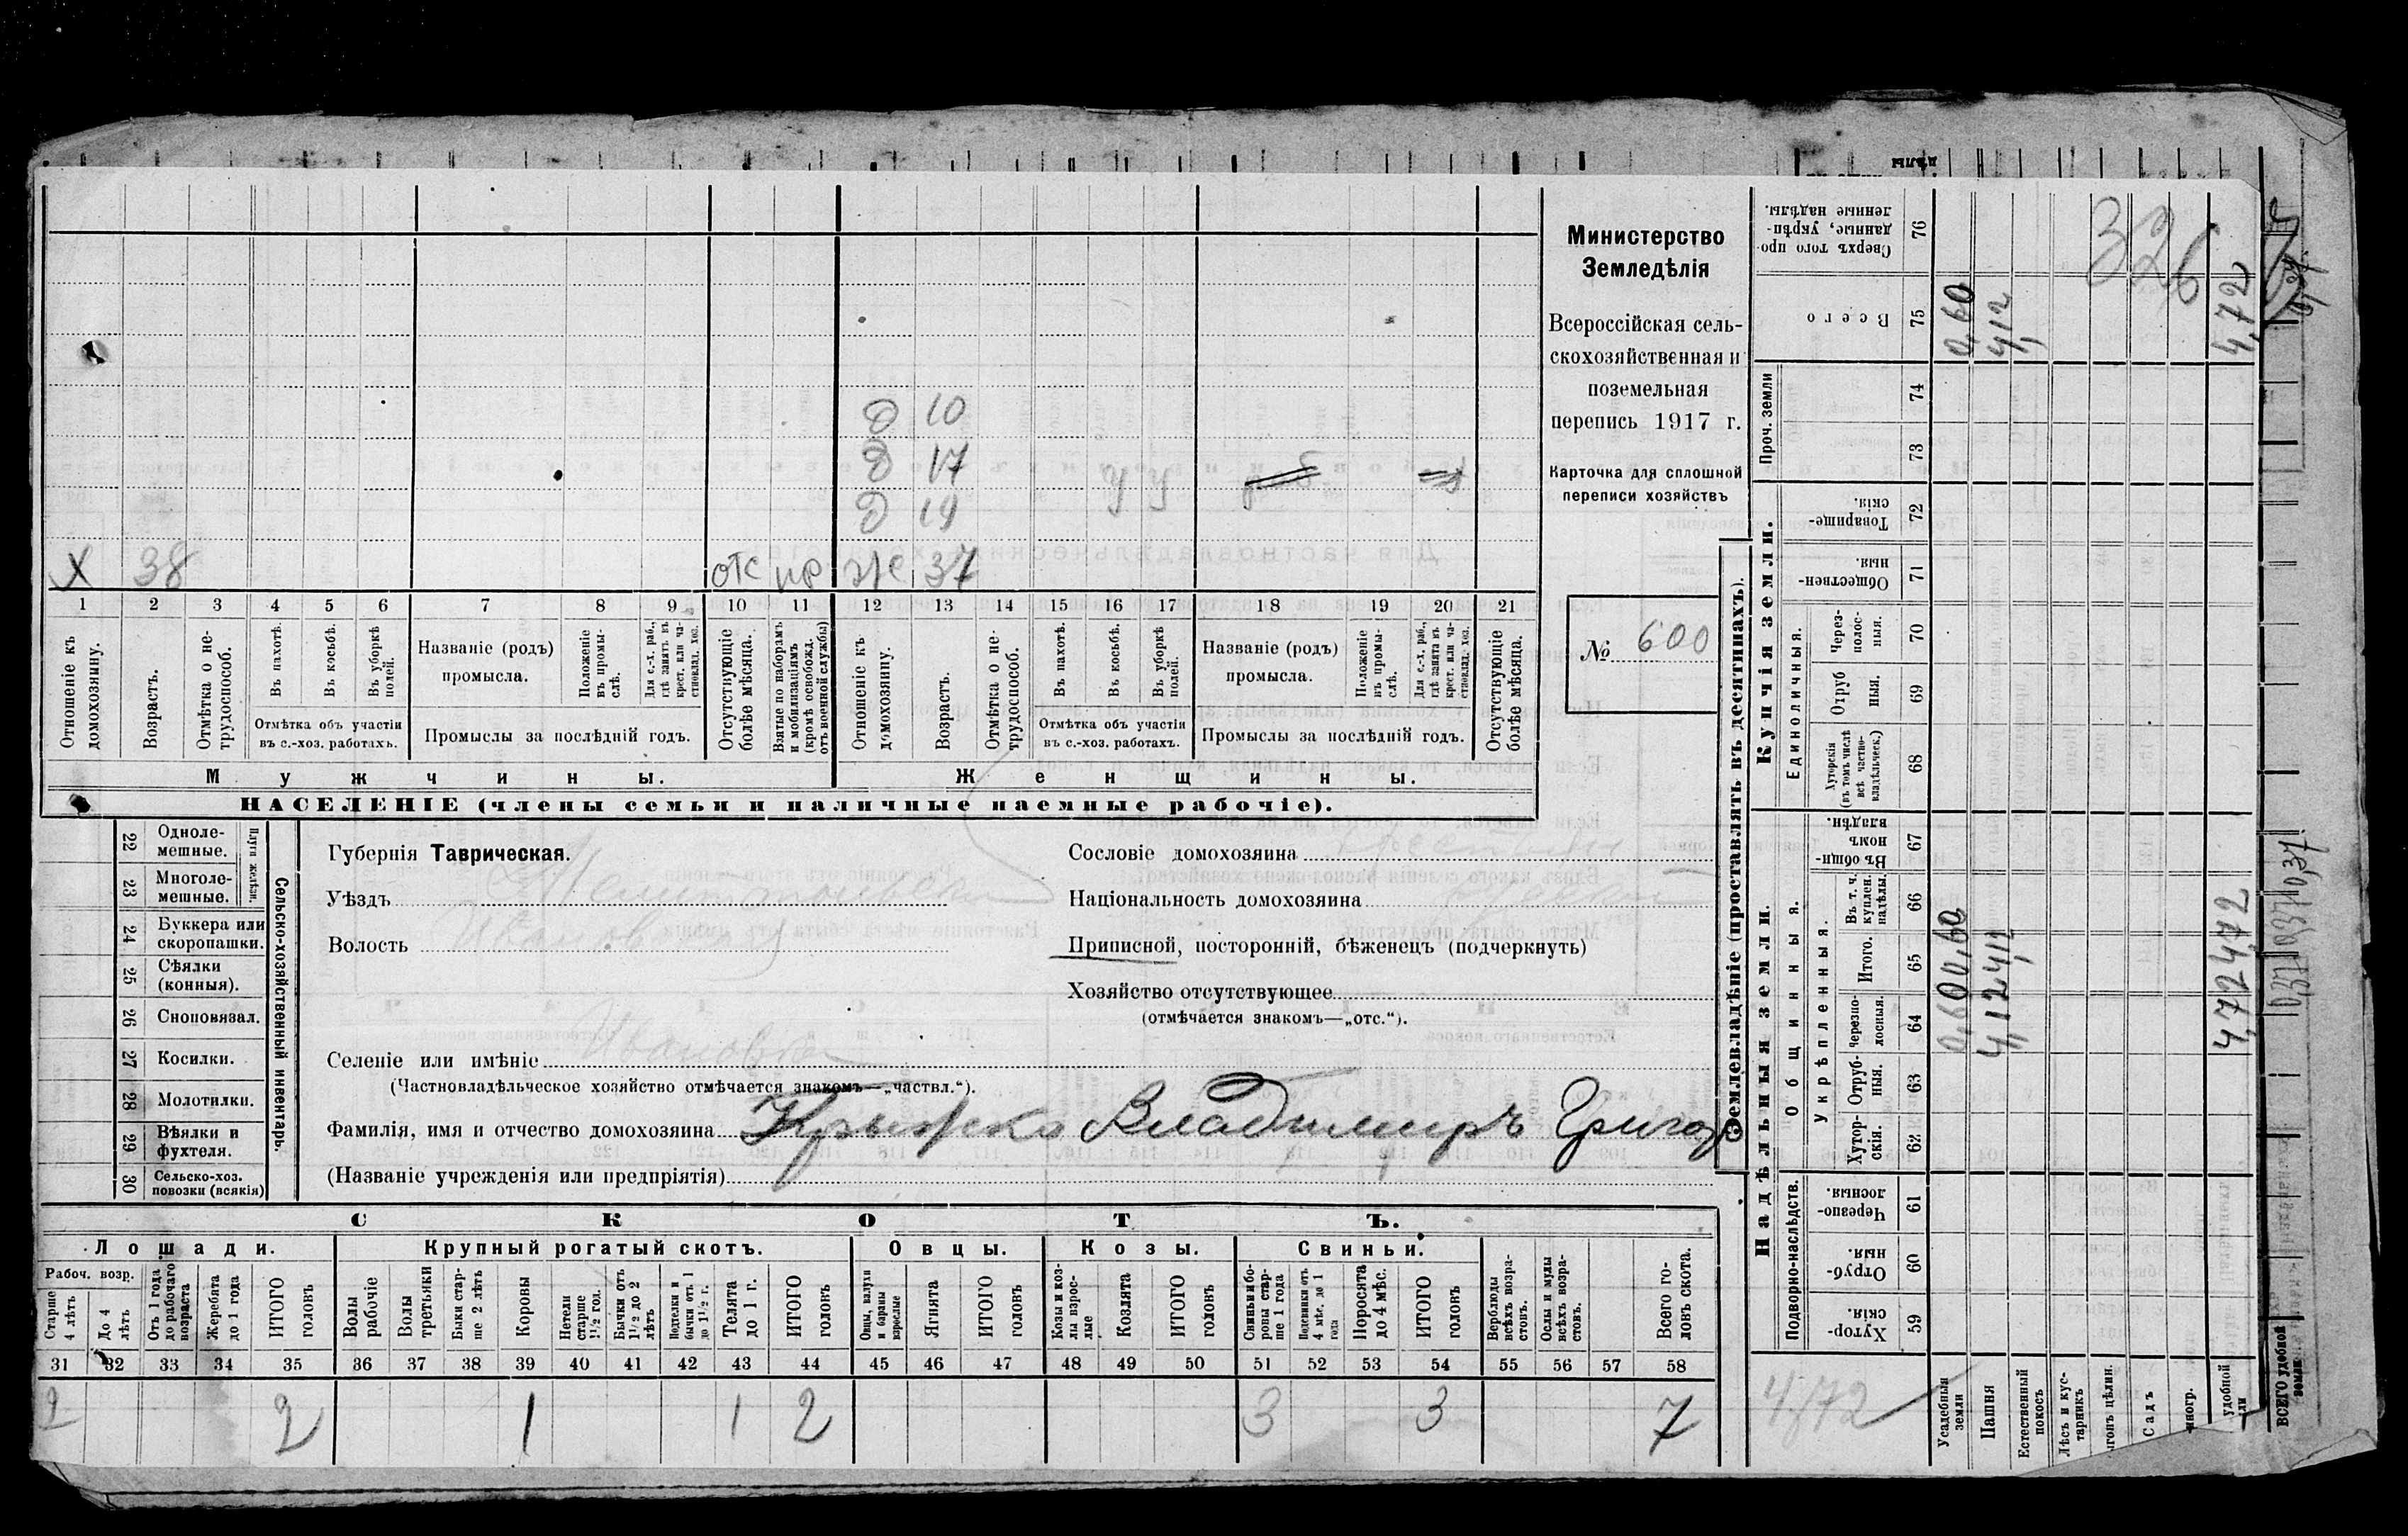 дѣлы
Х 38 отс пр ж 37
Д 19
Д 17 У У
Д 10
1 2 3 4 5 6 7 8 9 10 11 12 13 14 15 16 17 18 19 20 21
Отношеніе къ домохозяину.
Возрастъ.
Отмѣтка о не-трудоспособ.
Въ пахотѣ.
Въ косьбѣ.
Въ уборкѣ полей.
Отмѣтка объ участіи
въ с.-хоз. работахъ.
Названіе (родъ)
промысла.
Положеніе въ промы-слѣ.
Для с.-х. раб., гдѣ занятъ въ крест. или ча-стновлад. хоз.
Промыслы за послѣдній годъ.
Отсутствующіе болѣе мѣсяца.
Взятые по наборамъ и мобилизаціямъ (кромѣ освобожд. отъ военной службы)
Отношеніе къ домохозяину.
Возрастъ.
Отмѣтка о не-трудоспособ.
Въ пахотѣ.
Въ косьбѣ.
Въ уборкѣ полей.
Отмѣтка объ участіи
въ с.-хоз. работахъ.
Названіе (родъ)
промысла.
Положеніе въ промы-слѣ.
Для с.-х. раб., гдѣ занята въ крест. или ча-стновлад. хоз.
Промыслы за послѣдній годъ.
Отсутствующіе болѣе мѣсяца.
Мужчины.
Женщины.
НАСЕЛЕНІЕ (члены семьи и наличные наемные рабочіе).
Министерство
Земледѣлія
Всероссійская сель-
скохозяйственная и
поземельная
перепись 1917 г.
Карточка для сплошной
переписи хозяйствъ
№ 600
22 Одноле-мешные.
23 Многоле-мешные.
Плуги желѣзн.
24 Буккера или скоропашки.
25 Сѣялки (конныя).
26 Сноповязал.
27 Косилки.
28 Молотилки.
29 Вѣялки и фухтеля.
30 Сельско-хоз. повозки (всякія)
Сельско-хозяйственный инвентарь.
Губернія Таврическая.
Уѣздъ Мелитопольск
Волость Ивановская
Сословіе домохозяина
Національность домохозяина
Приписной, посторонній, бѣженецъ (подчеркнуть)
Хозяйство отсутствующее
(отмѣчается знакомъ—„отс.“).
Селеніе или имѣніе Ивановка
(Частновладѣльческое хозяйство отмѣчается знакомъ—„частвл.“).
Фамилія, имя и отчество домохозяина Крыжко Владимиръ Григор
(Названіе учрежденія или предпріятія)
СКОТЪ.
Лошади. Крупный рогатый скотъ. Овцы. Козы. Свиньи.
Рабоч. возр.
Старше 4 лѣтъ
До 4 лѣтъ
Отъ 1 года до рабочаго возраста
Жеребята до 1 года
ИТОГО головъ
Волы рабочіе
Волы третьяки
Быки стар-ше 2 лѣтъ
Коровы
Нетели старше 1½ год.
Бычки отъ 1½ до 2 лѣтъ
Подтелки и бычки отъ 1 до 1½ г.
Телята до 1 г.
ИТОГО головъ
Овцы, валухи и бараны взрослые
Ягнята
ИТОГО головъ
Козы и коз-лы взрос-лые
Козлята
ИТОГО головъ
Свиньи и бо-ровы стар-ше 1 года
Подсвинки отъ 4 мѣс. до 1 года
Поросята до 4 мѣс.
ИТОГО головъ
Верблюды всѣхъ возра-стовъ.
Ослы и мулы всѣхъ возра-стовъ.
Всего го-ловъ скота.
31 32 33 34 35 36 37 38 39 40 41 42 43 44 45 46 47 48 49 50 51 52 53 54 55 56 57 58
2 2 1 1 2 3 3 7
Землевладѣніе (проставлять въ десятинахъ).
Надѣльныя земли.
Купчія земли.
Проч. земли
Подворно-наслѣдств.
Общинныя.
Укрѣпленныя.
Единоличныя.
Сверхъ того про-данные, укрѣп-ленные надѣлы. 76
Всего 75
74
73
Товарище-скія. 72
Обществен-ныя. 71
Через-полос-ныя. 70
Отруб ныя. 69
Хуторскія (въ томъ числѣ всѣ частно-владѣльческ.) 68
Въ общин-номъ владѣн. 67
Въ т. ч. куплен. надѣлы. 66
Итого. 65
Черезпо-лосныя. 64
Отруб-ныя. 63
Хутор-скія. 62
Черезпо-лосныя. 61
Отруб-ныя. 60
Хутор-скія. 59
Усадебныя земли 0,60 0,60 0,60
Пашня 4,12 4,12 4,12
Естественный покосъ
Лѣсъ и кус-тарникъ
Садъ
удобной 4,72 4,72 4,72
ВСЕГО удобной земли
326
4,72